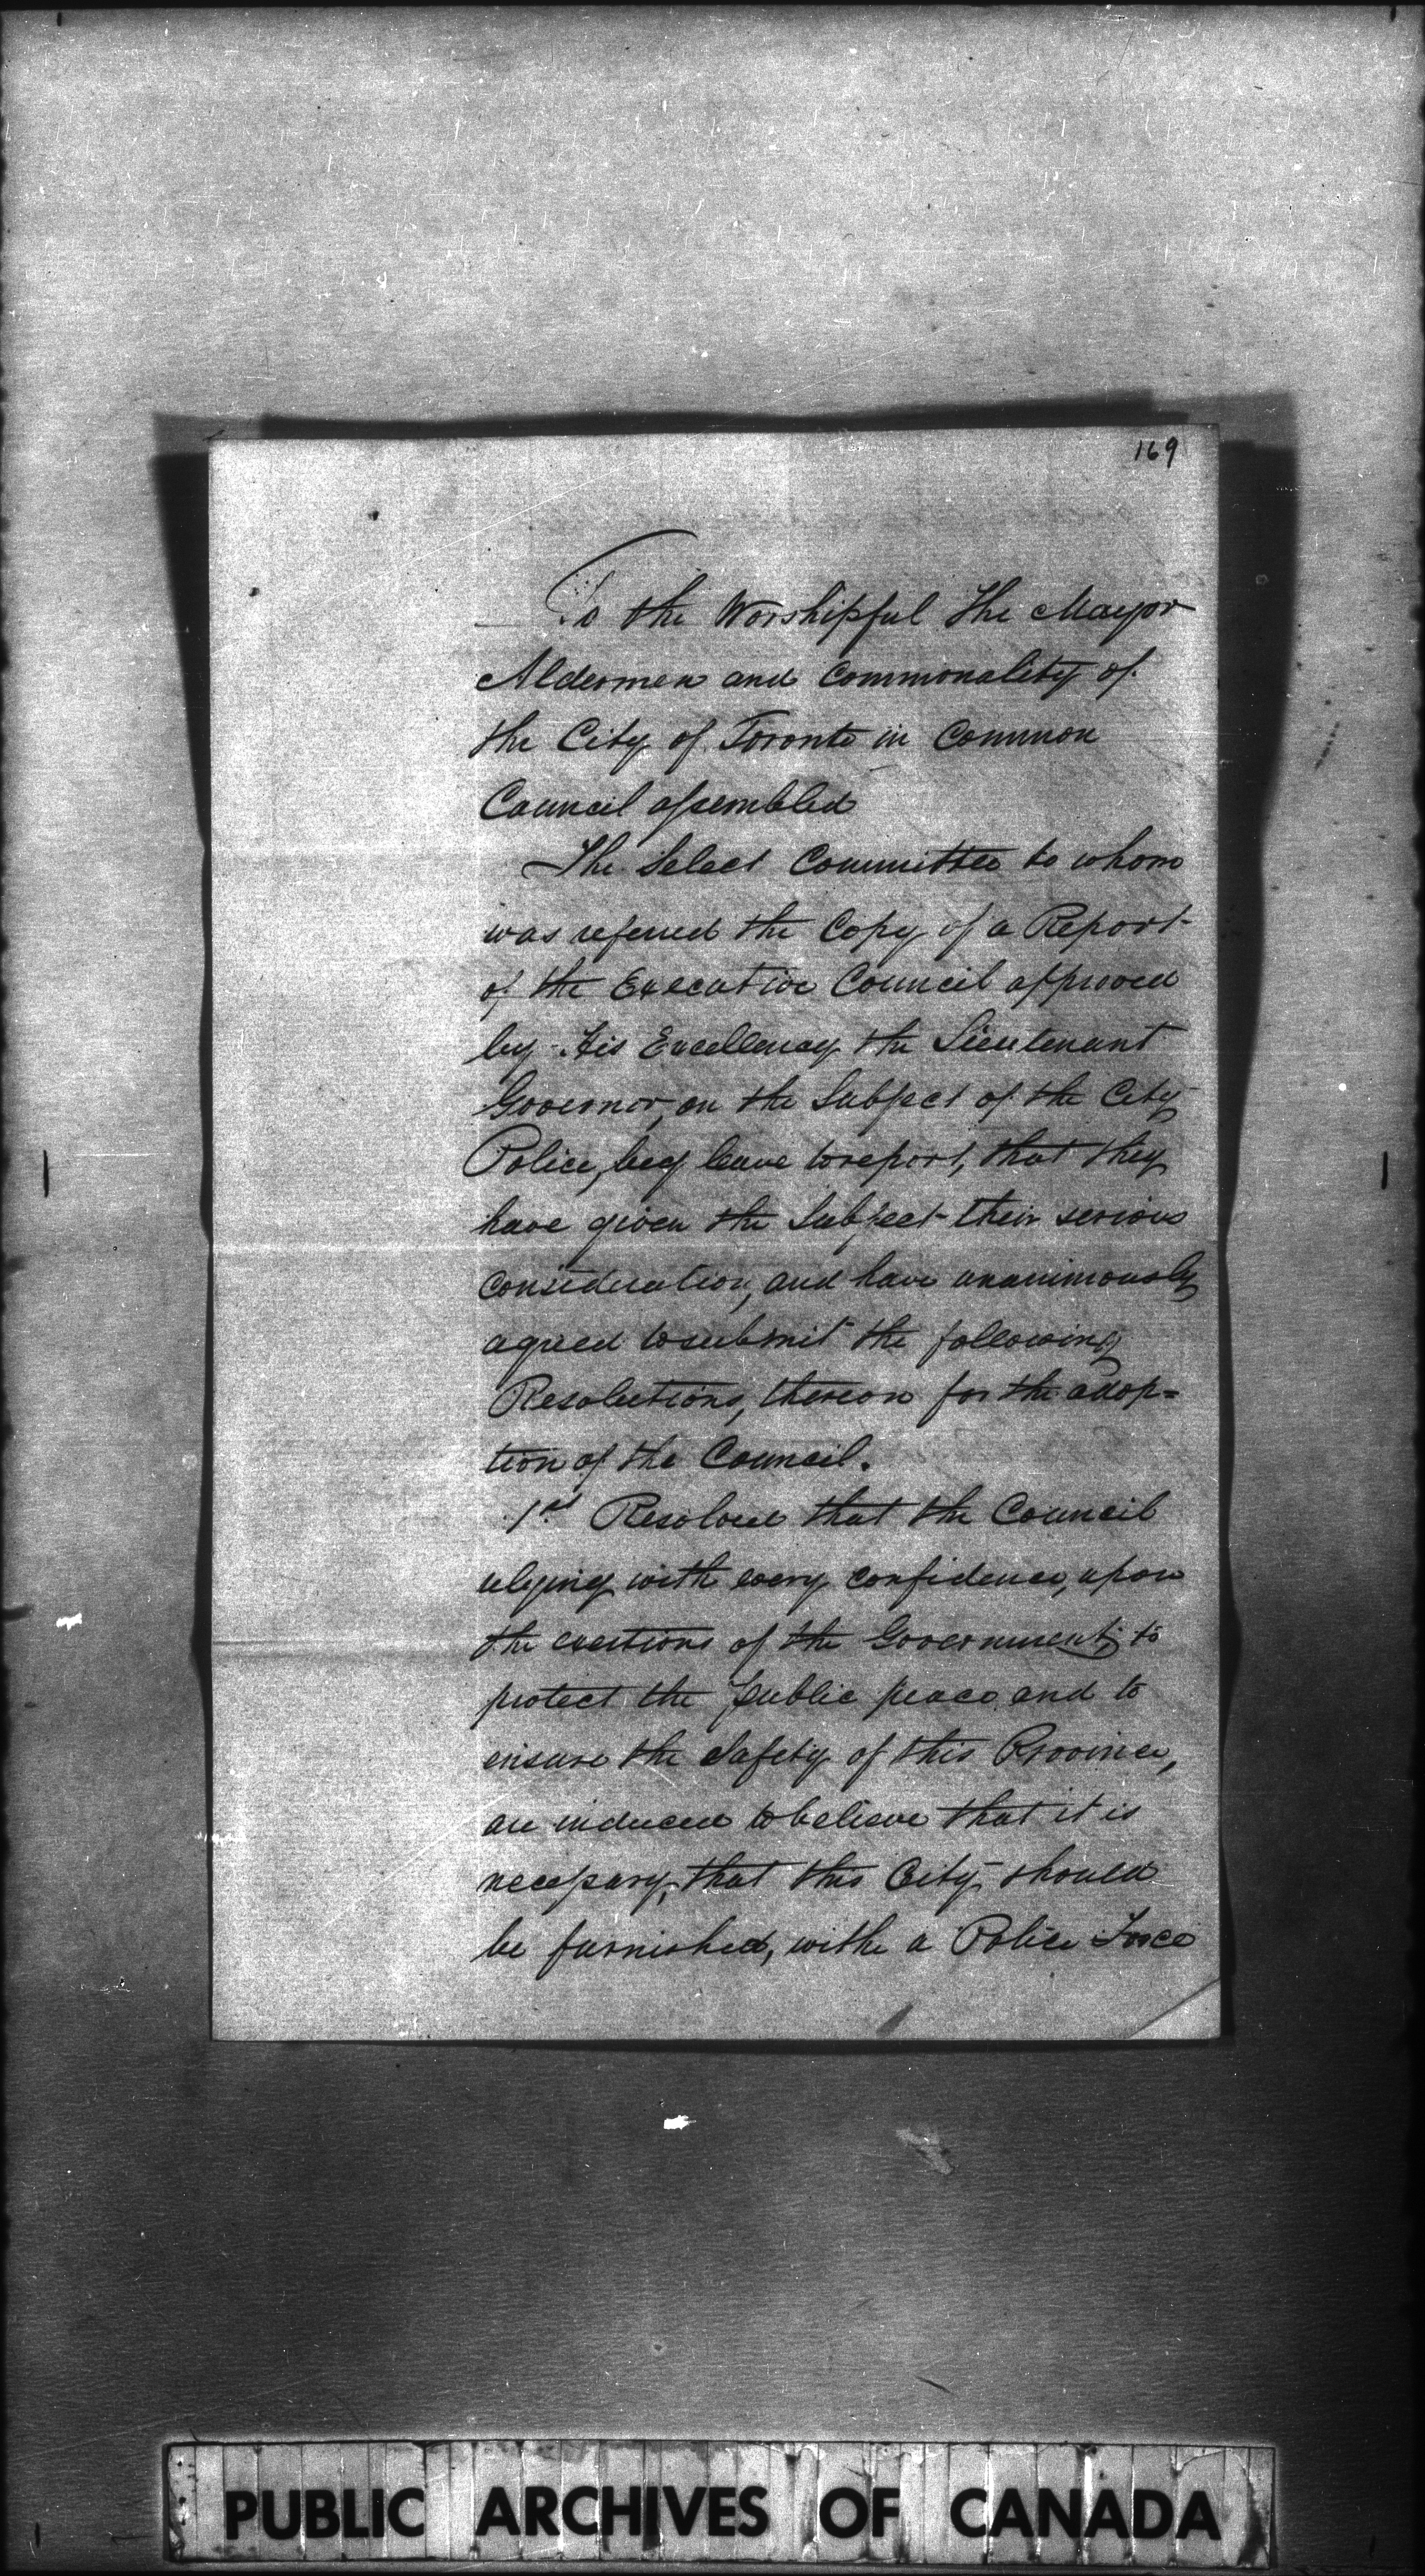 169
To the Worshipful The Mayor
Aldermen and Commonality of
the City of Toronto in Common
Council assembled
The Select Committee to whom
was referred the Copy of a Report
of the Executive Council approved
by His Excellency the Lieutenant
Governor, on the Subject of the City
Police, beg leave to report, that they
have given the Subject their serious
consideration, and have unanimously
agreed to submit the following
Resolutions, thereon for the adop=
tion of the Council.
1st Resolved that the Council
relying with every confidence, upon
the exertions of the Government; to
protect the public peace and to
ensure the Safety of this Province,
are induced to believe that it is
necessary, that this City should
be furnished, with a Police Force
PUBLIC ARCHIVES OF CANADA